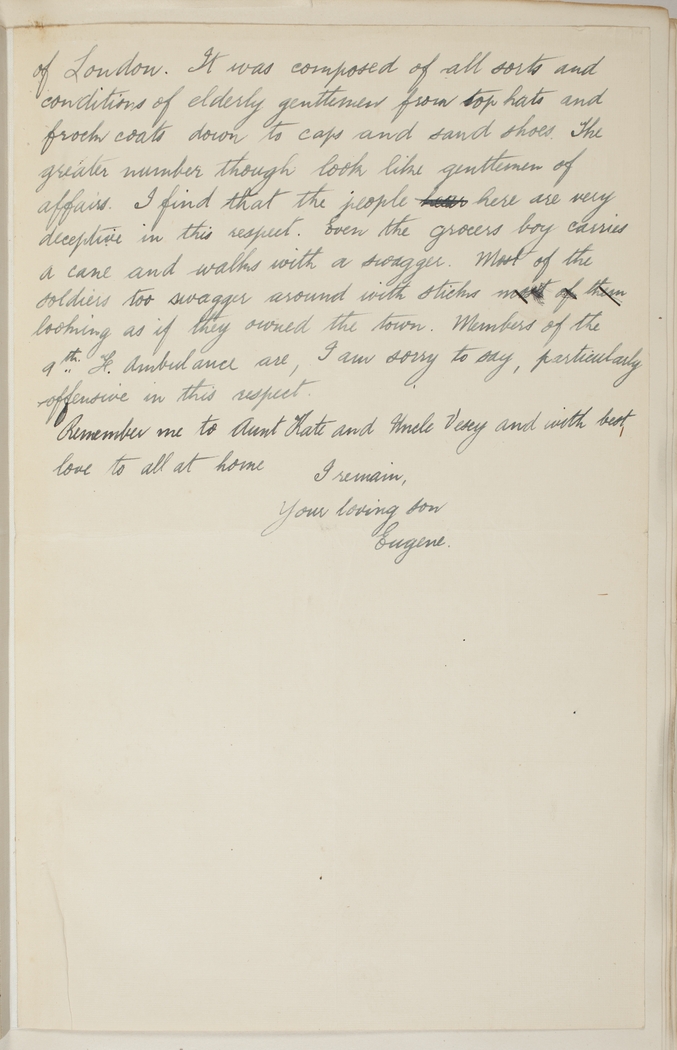 of London. It was composed of all sorts and
conditions of elderly gentlemen from top hats and
frock coats down to caps and sand shoes. The
greater number though look like gentlemen of
affairs. I find that the people here are very
deceptive in this respect. Even the grocers boy carries
a cane and walks with a swagger. Most of the
soldiers too swagger around with sticks most of them
looking as if they owned the town. Members of the
9th. F. Ambulance are, I am sorry to say, particularly
offensive in this respect.
Remember me to Aunt Kate and Uncle Vesey and with best
love to all at home
I remain,
Your loving son
Eugene.